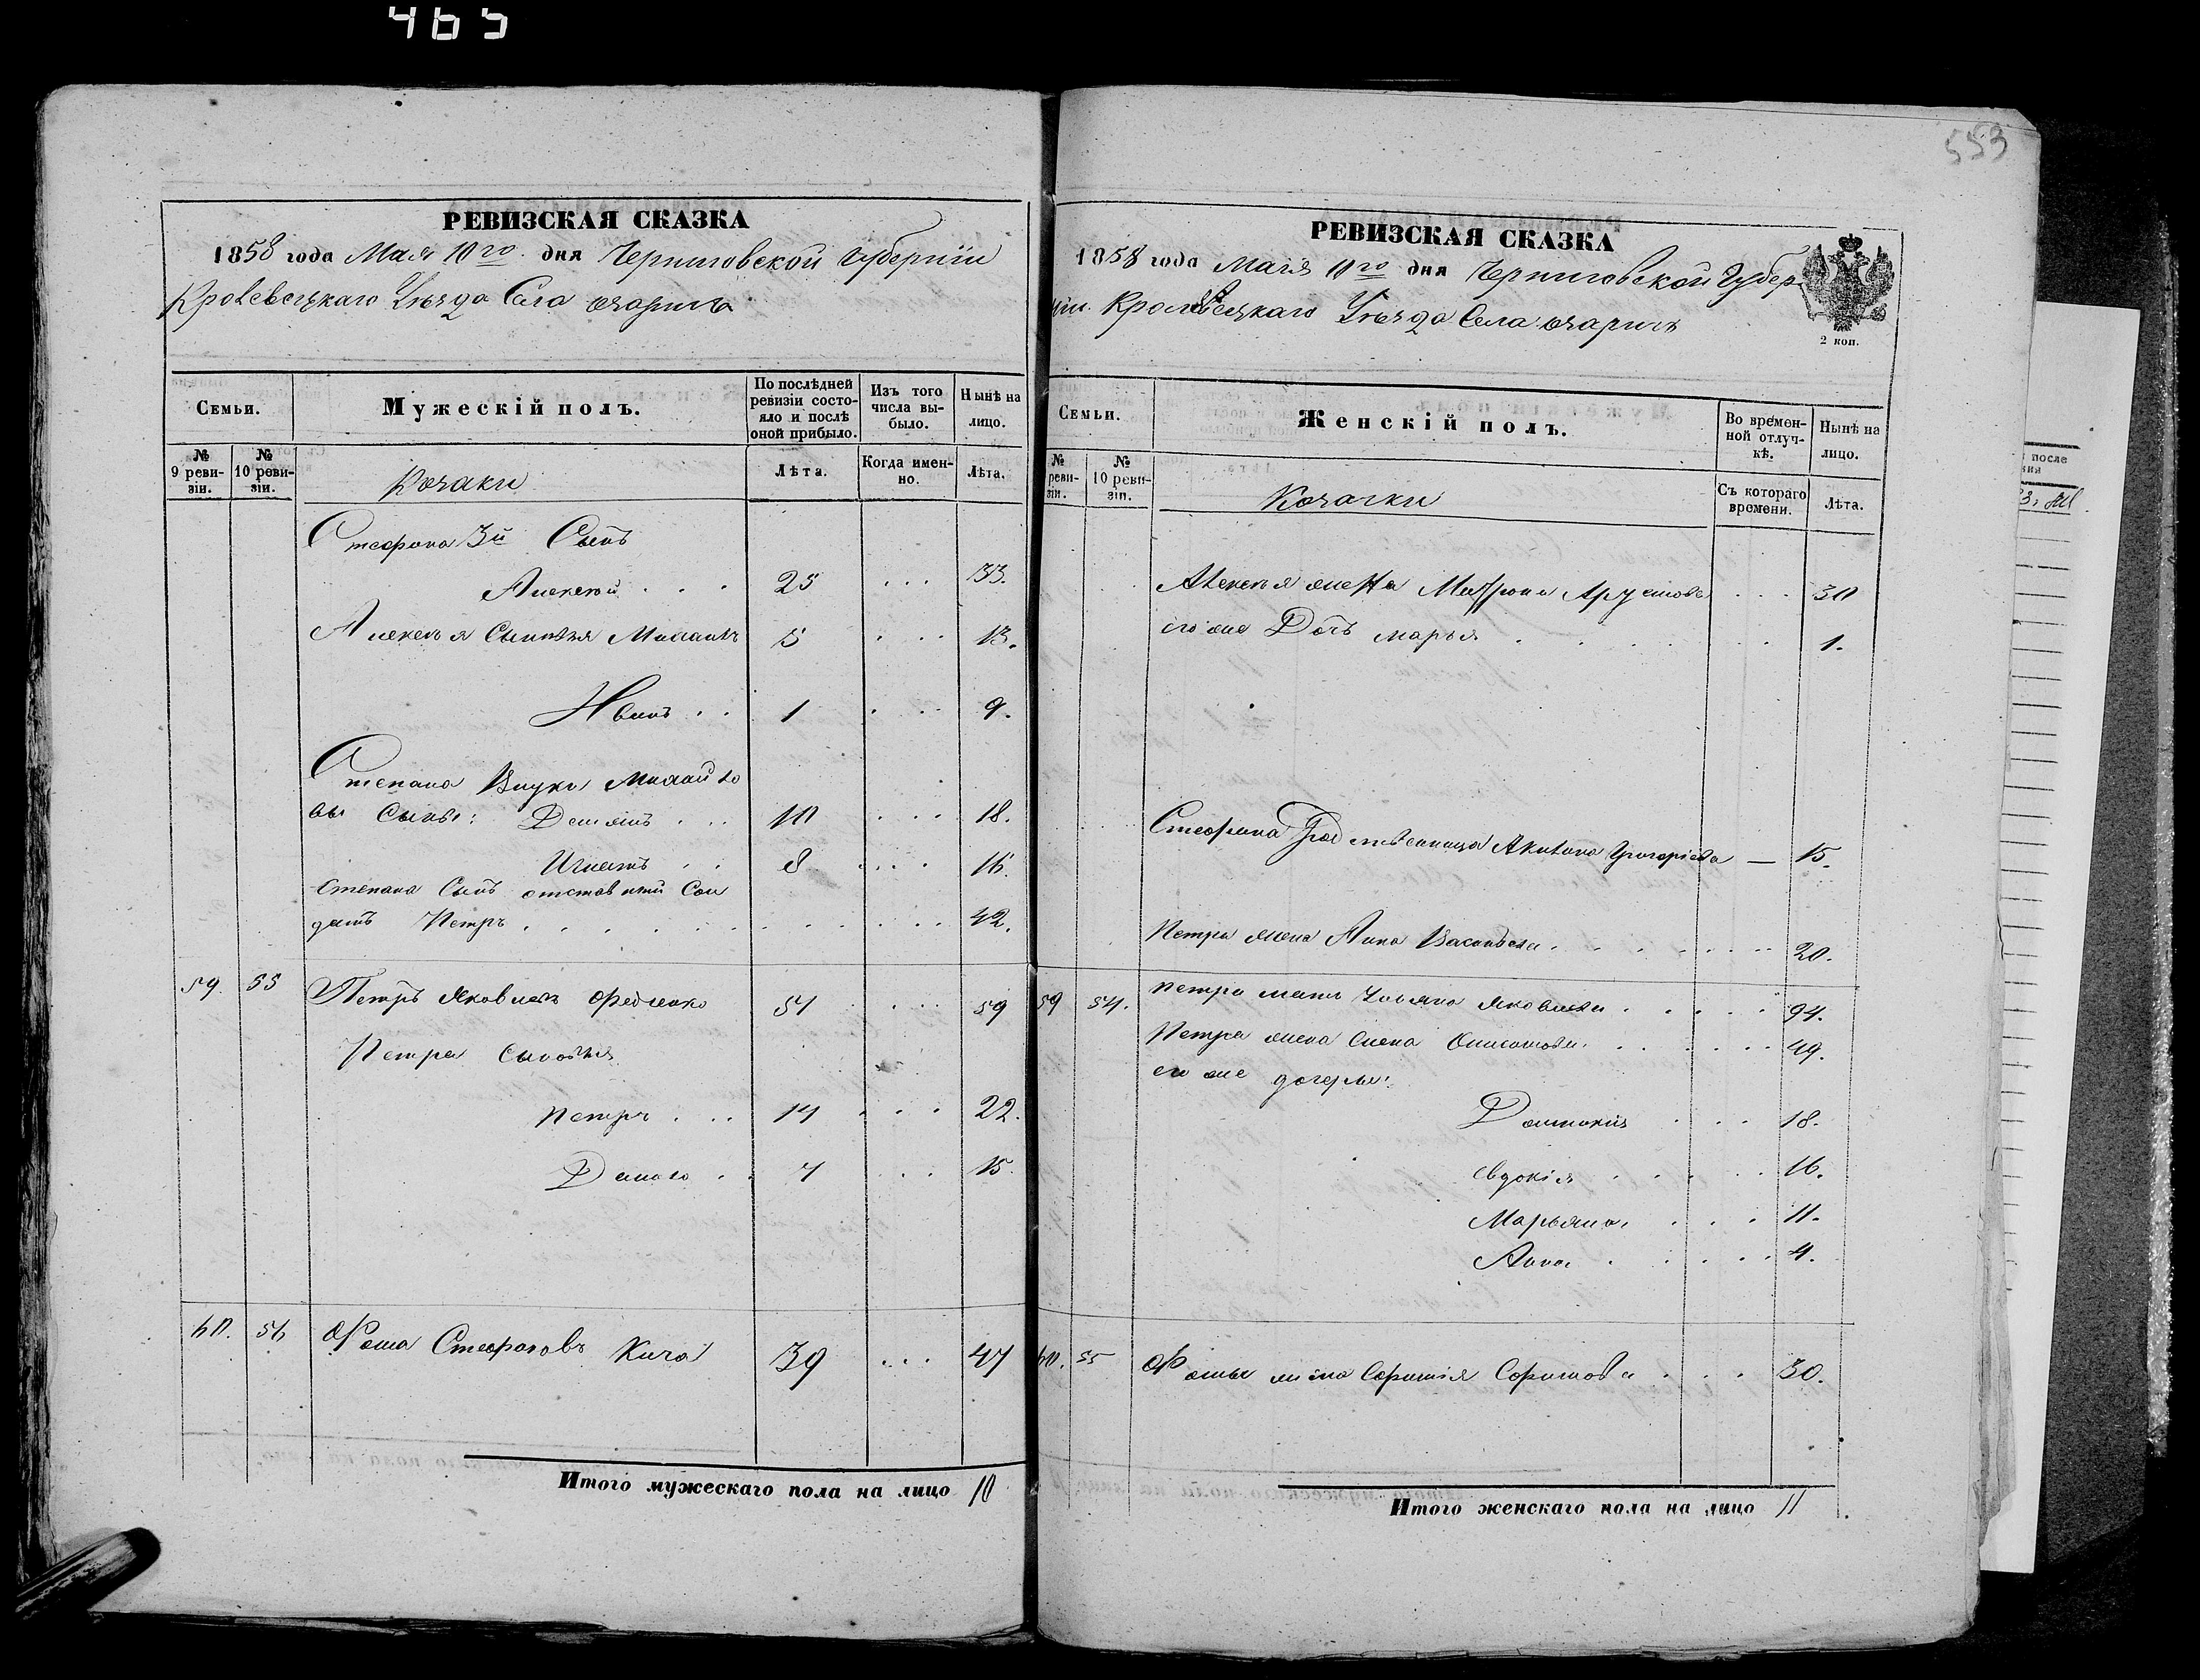 465
553
РЕВИЗСКАЯ СКАЗКА
1858 года Мая 10го дня Черниговской Губерніи
Кролевецкаго Уѣзда Села
Семьи.
Мужескій полъ.
По послѣдней ревизіи состояло и послѣ оной прибыло.
Изъ того числа выбыло.
Нынѣ на лицо.
№ 9 ревизіи.
№ 10 ревизіи.
Козаки
Лѣта.
Когда именно.
Лѣта.
Стефана 3й Сынъ
Алексѣй . . . 25 . . . 33.
Алексѣя Сыновья Михаилъ 5 . . . 13.
Иванъ . . 1 . . . 9.
Степана Внуки Михайло
вы Сыны: Демянъ . . . 10 . . . 18.
Игнатъ . . 8 . . . 16.
Степана Сынъ отставный Сол
датъ Петръ . . . . . . . . . . 42.
59. 55 Петръ Яковлевъ Федченко 51 . . . 59
Петра Сыновья
Петръ . . . 14 . . . 22.
Данило . . 7 . . . 15.
60. 56 Фома Стефановъ Кича 39 . . . 47
Итого мужескаго пола на лицо 10
РЕВИЗСКАЯ СКАЗКА
1858 года Мая 10го дня Черниговской Губер
ніи Кролевецкаго Уѣзда Села
2 коп.
Семьи.
Женскій полъ.
Во временной отлучкѣ.
Нынѣ на лицо.
№ ревизіи.
№ 10 ревизіи.
Козачки
Съ котораго времени.
Лѣта.
Алексѣя жена Матрона . . . 30
его же Дочь Марья . . . . . 1.
Стефана Акилина Григорьева — 15.
Петра жена Анна Васильева . . . . . . . 20.
59 54. Петра мать Ульяна Яковлева . . . . . 94.
Петра жена Елена . . . . . . 49.
его же дочери:
Домникия . . . 18.
Евдокія . . . . . 16.
Марьяна . . . 11.
Анна . . . . . 4.
60. 55 Фомы жена Софія . . . 30.
Итого женскаго пола на лицо 11
после